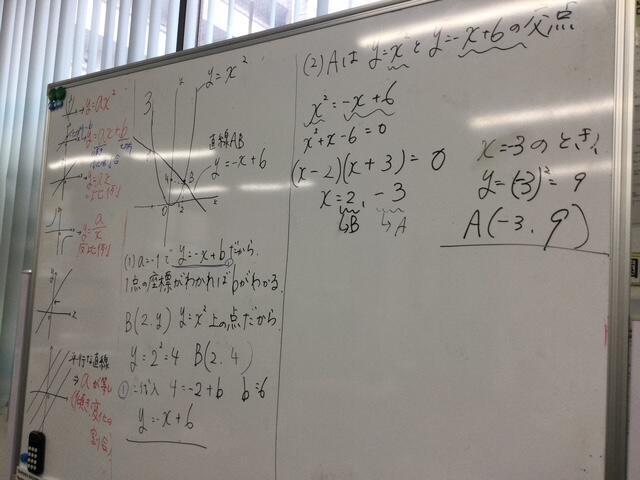 y=ax²
y=ax+b
y=ax
比例
y=a/x
反比例
平行な直線
⇒ aが等しい
変化の
割合
3
y=x²
直線AB
y=-x+6
4
B
0
2
x
(1) a=-1で y=-x+b だから
1点の座標がわかればbがわかる.
B(2, y) y=x²上の点だから.
y=2²=4 B(2, 4)
①に代入 4=-2+b b=6
y=-x+6
(2) Aは y=x² と y=-x+6 の交点
x²=-x+6
x²+x-6=0
(x-2)(x+3)=0
x=2, -3
↳B ↳A
x=-3のとき,
y=(-3)²=9
A(-3, 9)